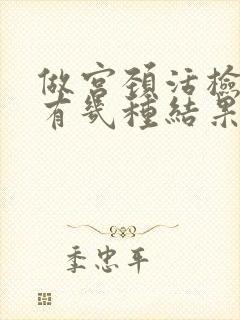 做宫颈活檢
有幾種結果
季忠平